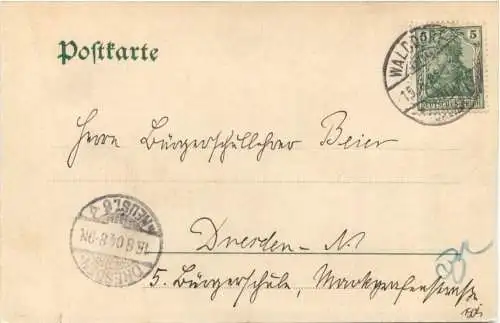 Postkarte
5
WALDDORF
DEUTSCHES REICH
Herrn Bürgerschullehrer Beier
Dresden-N.
5. Bürgerschule, Markgrafenstraße
DRESDEN
NEUST. 6
15.8.04.8-9N.